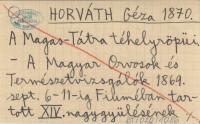 HORVÁTH Géza 1870.
A Magas-Tátra téhelyröpüi.
- A Magyar Orvosok és
Természetvizsgálók 1869.
sept. 6-11-ig Fiuméban tar-
tott XIV. nagygyűlésének